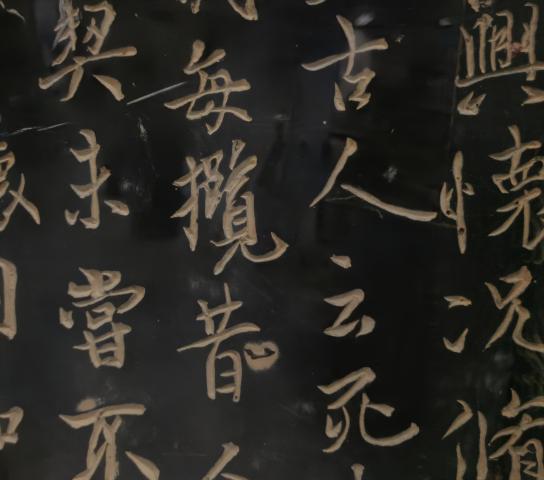 興懷況脩
古人云死
每攬昔人
契未嘗不